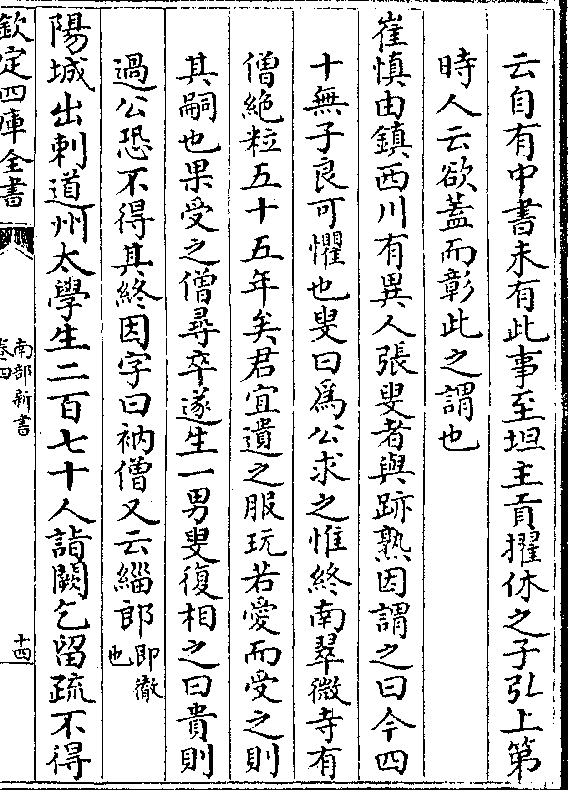 云自有中書未有此事至坦主貢擢休之子弘上第
時人云欲蓋而彰此之謂也
崔慎由鎮西川有異人張叟者與跡熟因謂之曰今四
十無子良可懼也叟曰爲公求之惟終南翠微寺有
僧絶粒五十五年矣君宜遺之服玩若愛而受之則
其嗣也果受之僧尋卒遂生一男叟復相之曰貴則
過公恐不得其終因字曰衲僧又云緇郎即徹也
陽城出刺道州太學生二百七十人詣闕乞留疏不得
欽定四庫全書
南部新書
卷四
十四